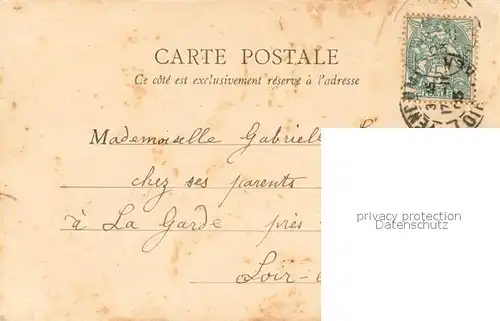 CARTE POSTALE
Ce côté est exclusivement réservé à l'adresse
Mademoiselle Gabriell
chez ses parents
à La Garde près
Loir-
privacy protection
Datenschutz